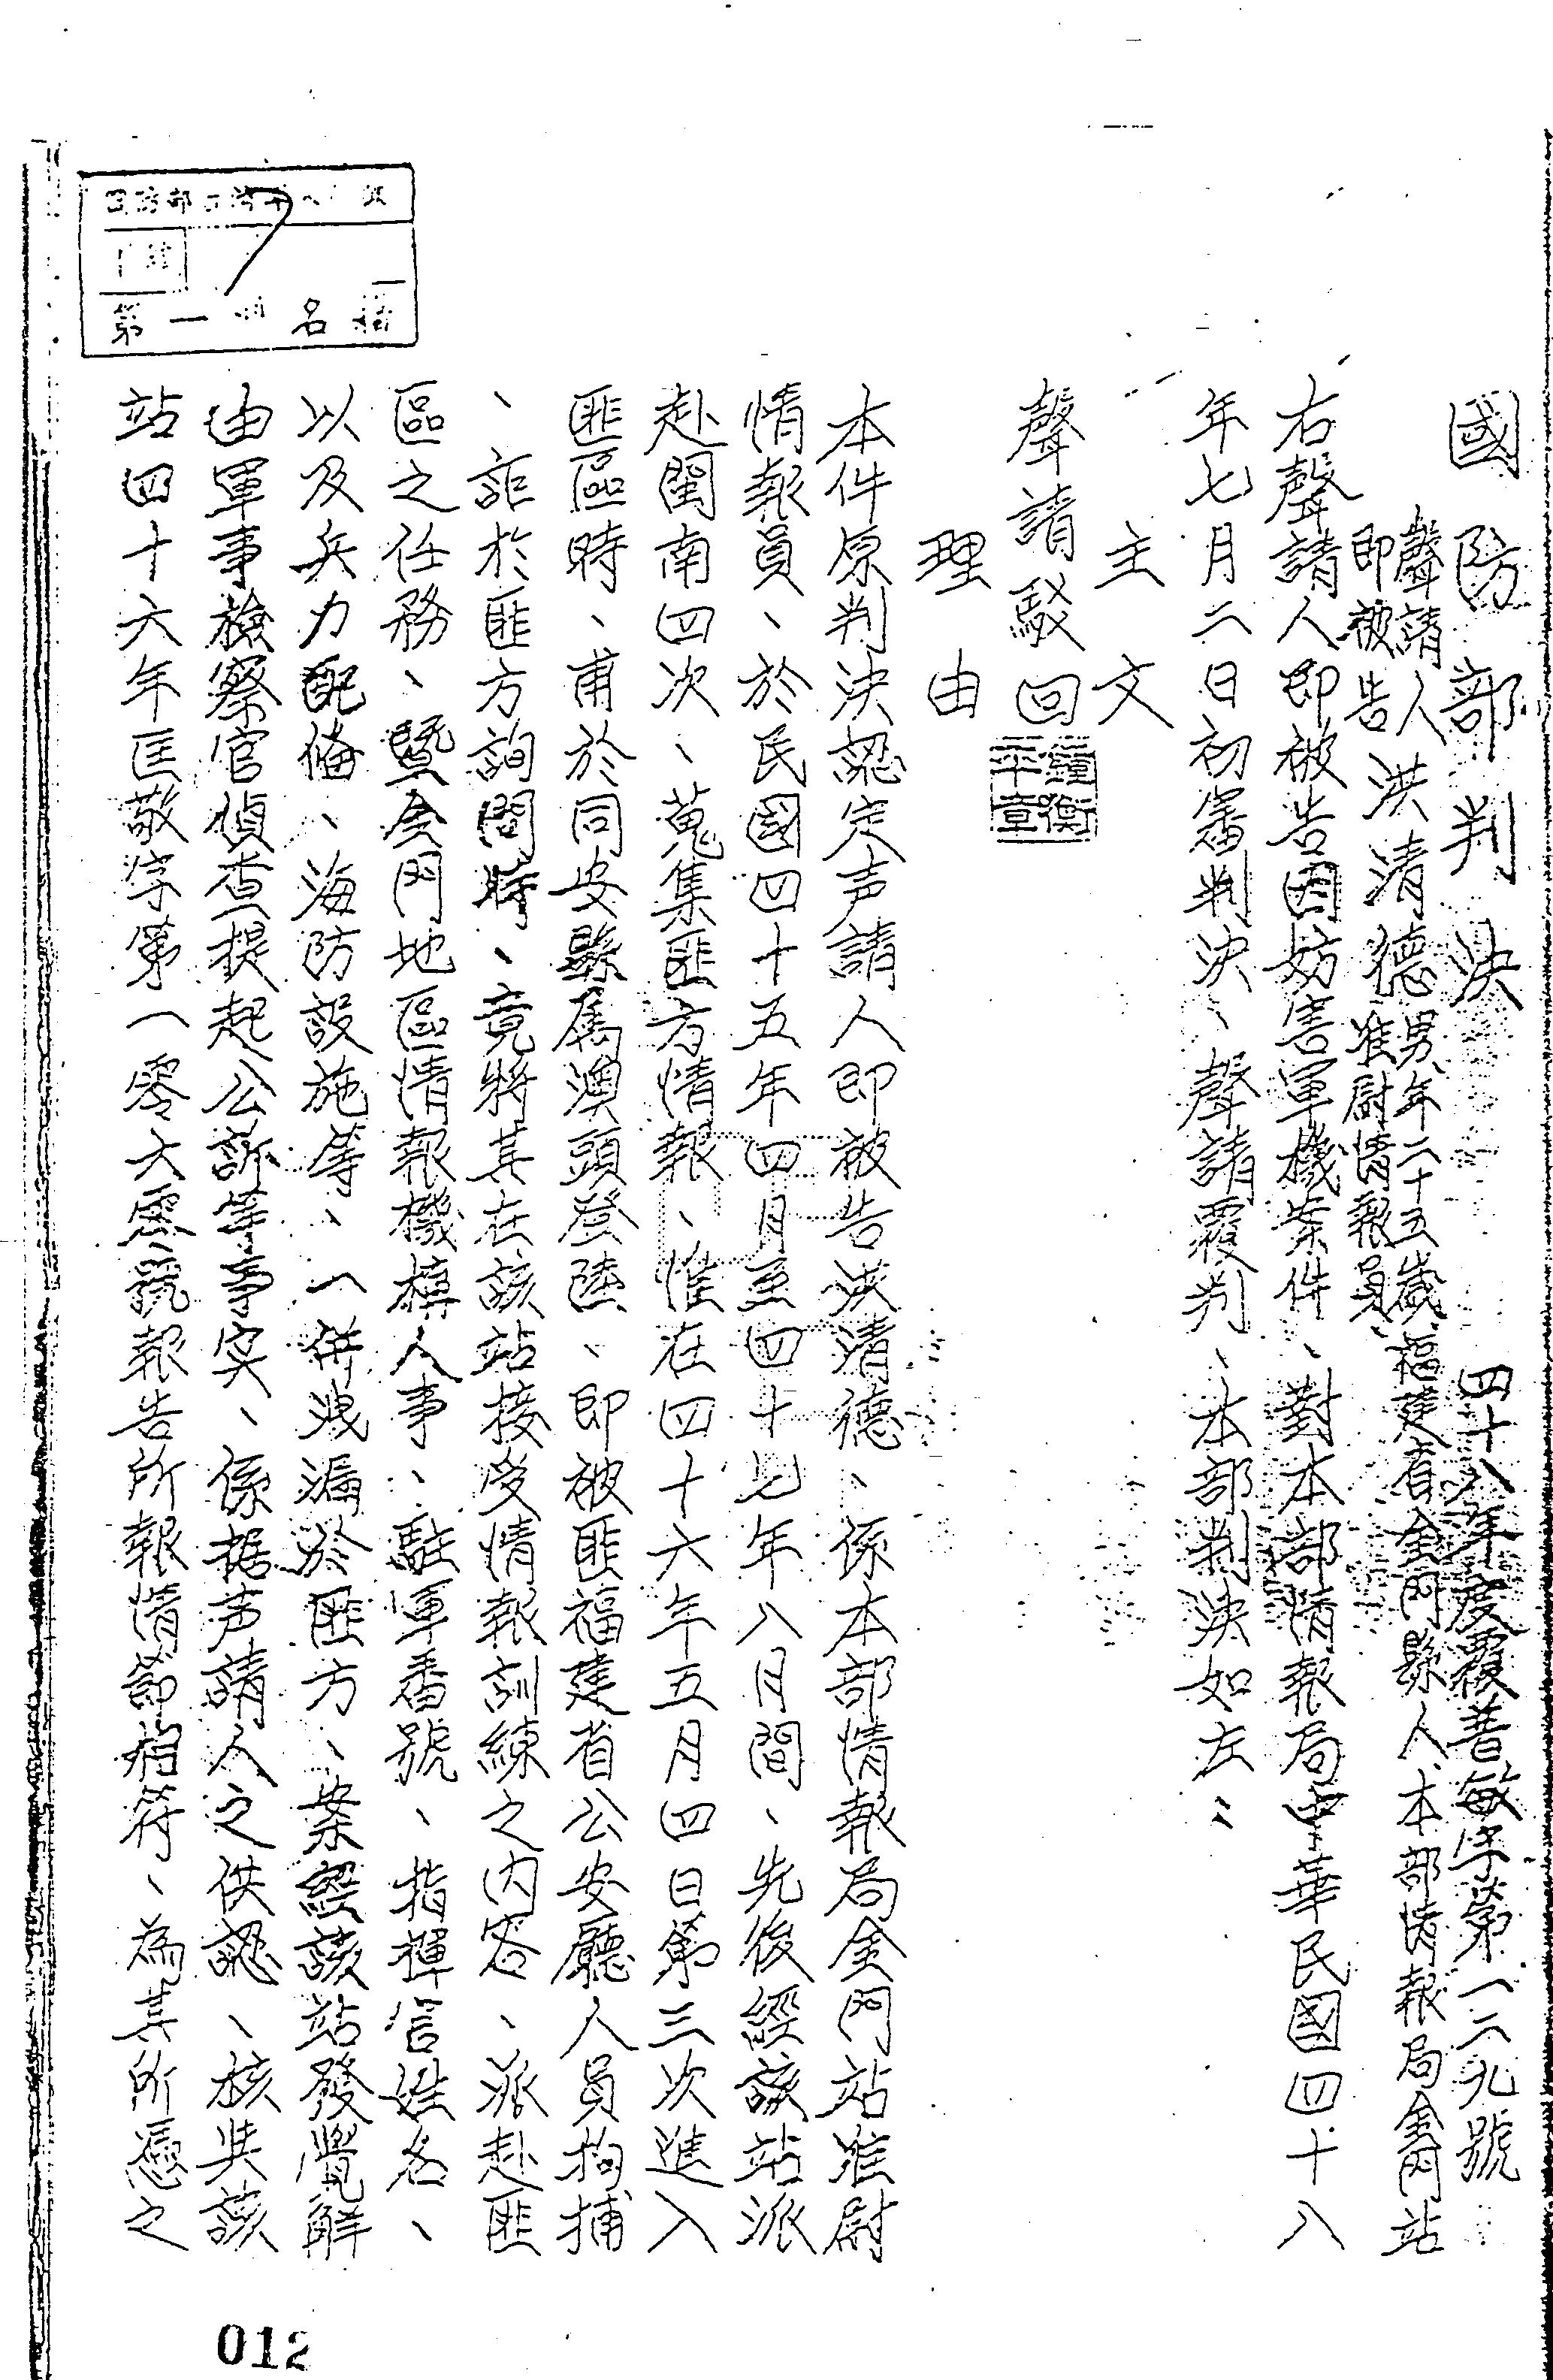 國防部判決　四十八年度覆普敏字第一二九號
聲請人
即被告　洪清德　男、年二十五歲、福建省金門縣人、本部情報局金門站
准尉情報員、
右聲請人即被告因妨害軍機案件、對本部情報局中華民國四十八
年七月二日初審判決、聲請覆判、本部判決如左：
主文
聲請駁回
理由
本件原判決認定声請人即被告洪清德、係本部情報局金門站准尉
情報員、於民國四十五年四月至四十七年八月間、先後經該站派
赴閩南四次、蒐集匪方情報、惟在四十六年五月四日第三次進入
匪區時、甫於同安縣屬澳頭登陸、即被匪福建省公安廳人員拘捕
、詎於匪方詢問時、竟將其在該站接受情報訓練之內容、派赴匪
區之任務、暨金門地區情報機構人事、駐軍番號、指揮官姓名、
以及兵力配備、海防設施等、一併洩漏於匪方、案經該站發覺解
由軍事檢察官偵查提起公訴等事实、係据声請人之供認、核與該
站四十六年匡敬字第一零六號報告所報情節相符、為其所憑之
第一 名 
012